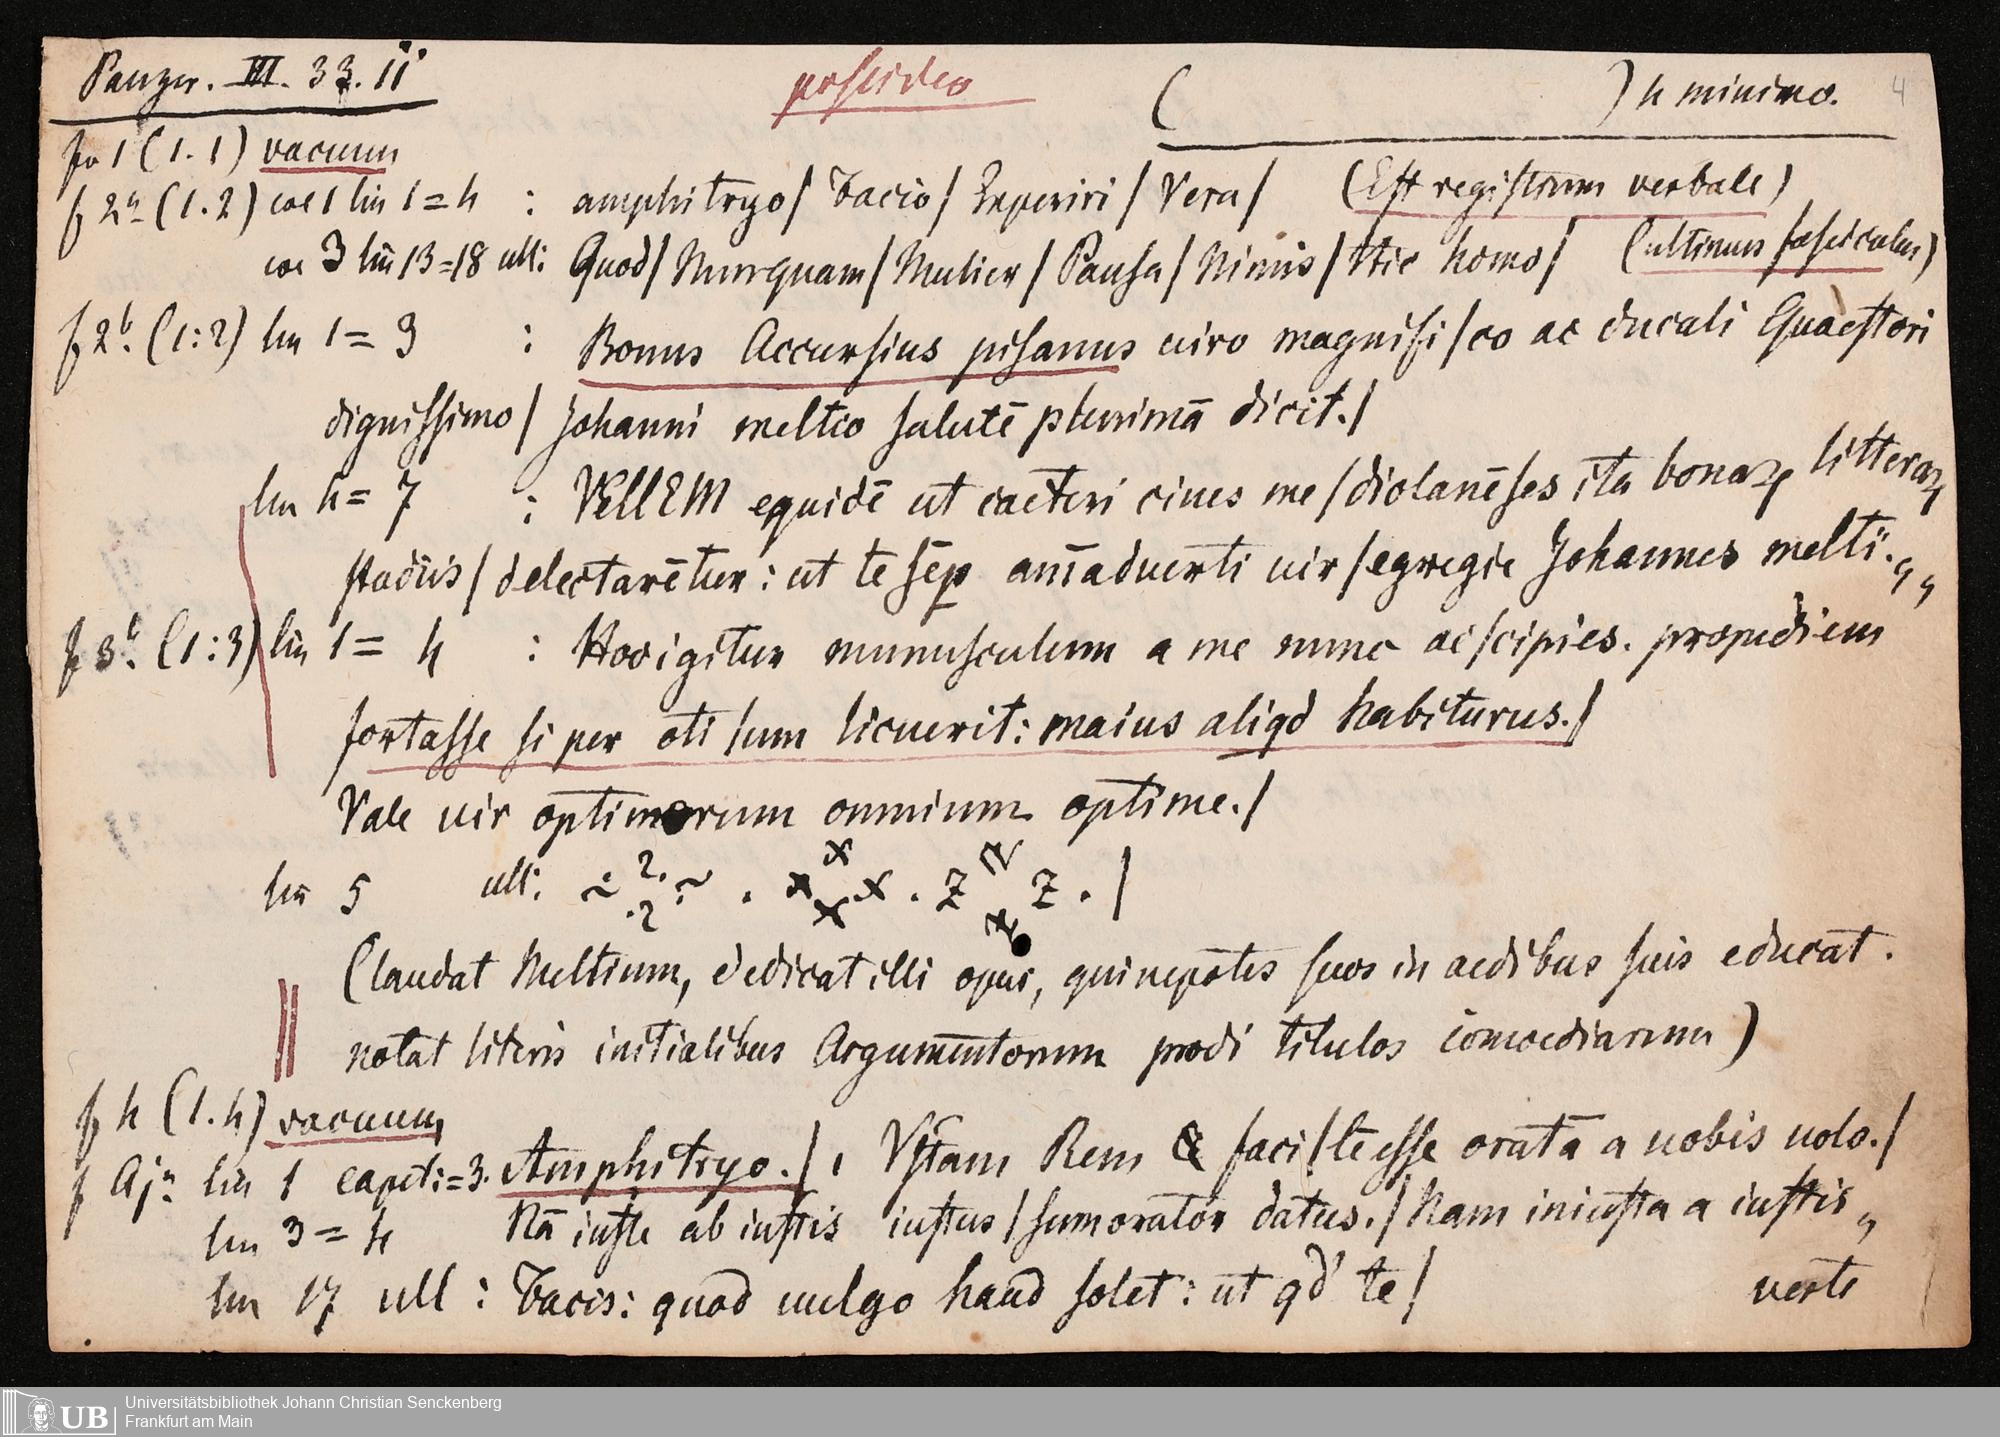 Panzer. III. 33. ii possideo ( ) 4 minimo. 4
fo 1 (1.1) vacuum
f 2a (1.2) coe 1 lin 1=4 : amphitryo/ Tacio/ Experiri/ Vera/ (Est registrum verbale)
coe 3 lin 13=18 ult: Quod/ Nunquam/ Mulier/ Pausa/ Nimis/ Hic homo/ (ultimus fasciculus)
f 2b. (1:2) lin 1= 3 : Bonus Accursius pisanus uiro magnifi/co ac ducali Quaestori
dignissimo/ Johanni meltio salutē plurimā dicit./
lin 4= 7 : VEllEM equidē ut caeteri ciues me/diolanēses ita bonaꝝ litteraꝝ
studiis/ delectarētur: ut te sēp aīaduerti uir/egregie Johannes melti.„
f 3b. (1:3) lin 1= 4 : Hoc igitur munusculum a me nunc ac/cipies. propediem
fortasse si per oti/um licuerit: maius aliqd habiturus./
Vale uir optimorum omnium optime./
lin 5 ult:
(laudat Meltium, dedicat illi opus, qui nepotes suos in aedibus suis educat.
notat literis initialibus Argumentorum prodi titulos comoediarum)
f 4 (1.4) vacuum
f Aja lin 1 capit:=3. Amphitryo./ Vstam Rem & faci/lē esse oratā a uobis uolo./
lin 3 = 4 Nā iuste ab iustis iustus/ sum orator datus./ Nam iniusta a iustis„
lin 17 ult : Tacis: quod uulgo haud solet: ut qd te/ verte
Universitätsbibliothek Johann Christian Senckenberg
UB Frankfurt am Main